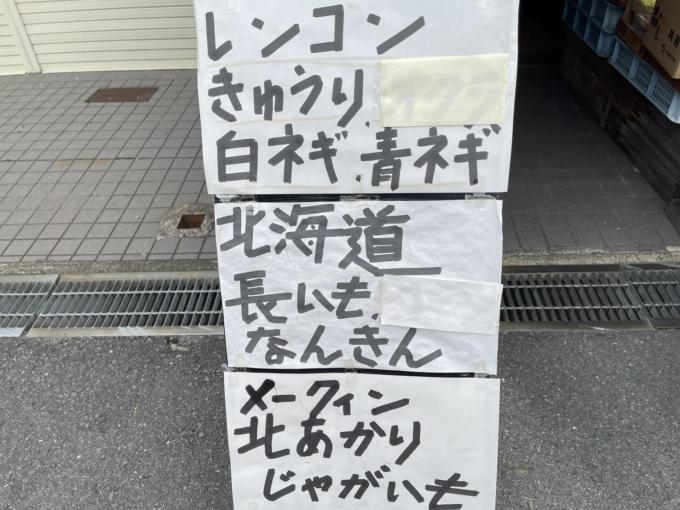 レンコン
きゅうり、オクラ
白ネギ、青ネギ
北海道
長いも、
なんきん
メークィン
北あかり
じゃがいも